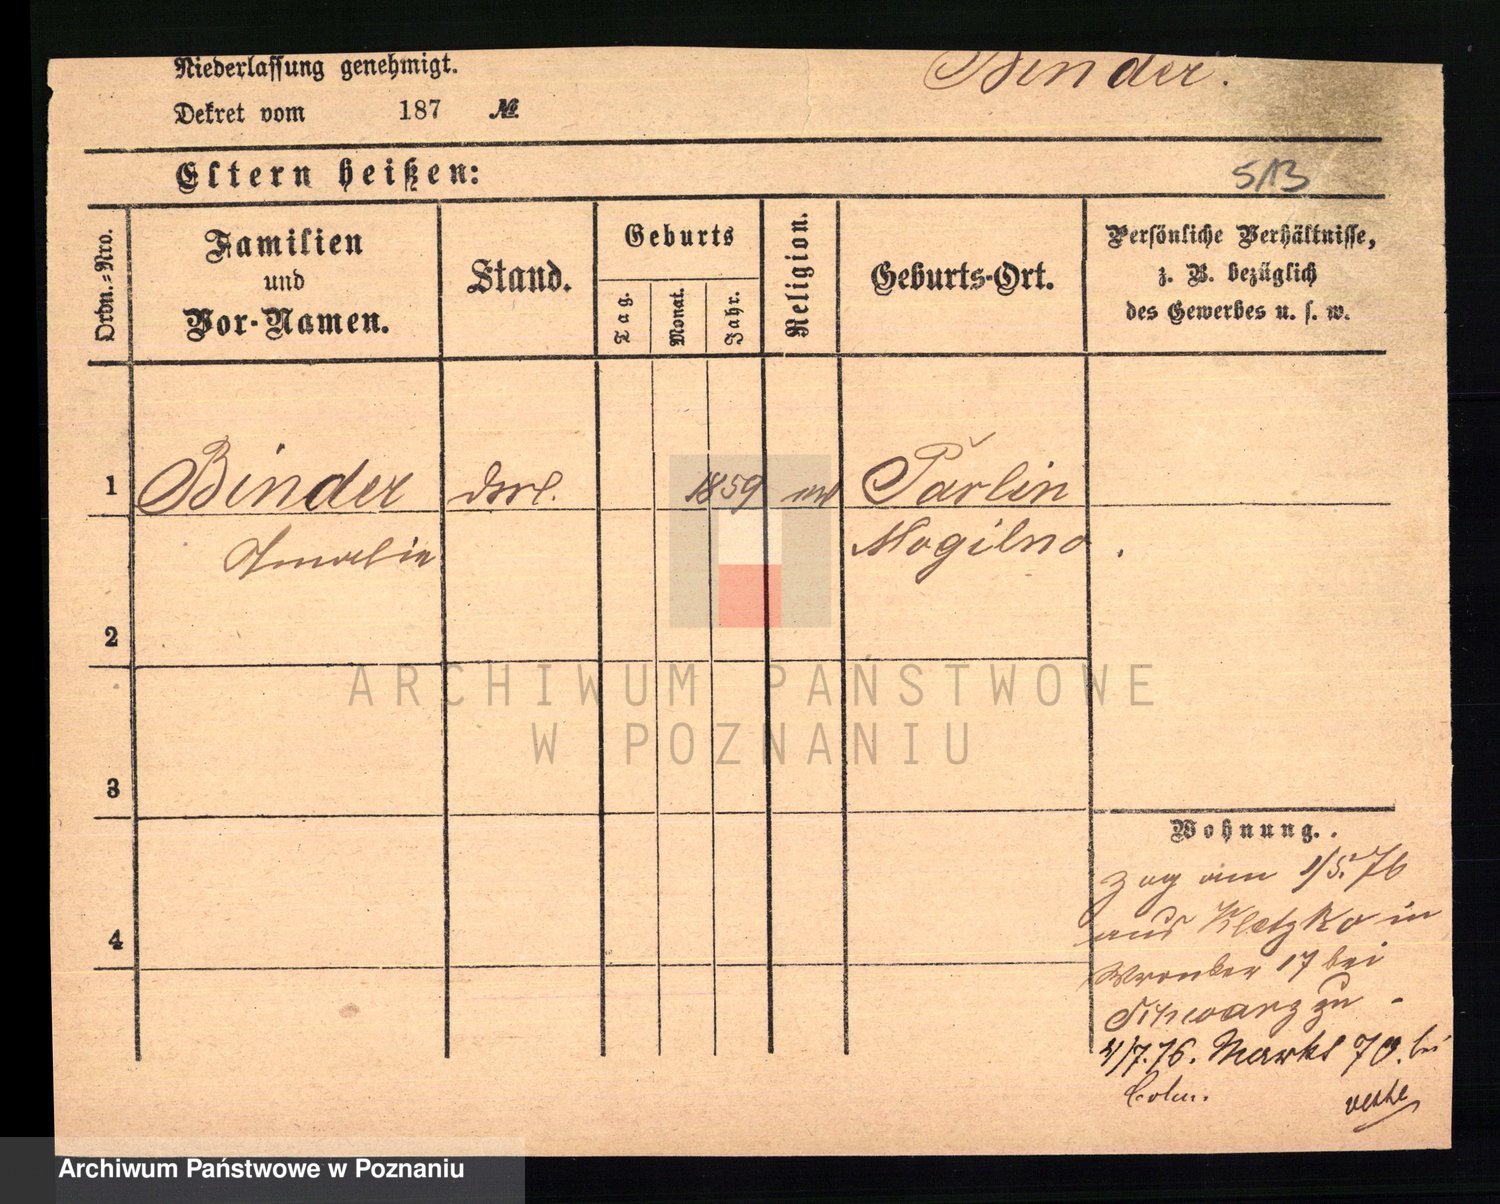 Niederlassung genehmigt.
Binder.
Dekret vom 187 №
Eltern heißen:
513
Ordn.-Nro.
Familien
und
Vor-Namen.
Stand.
Geburts
Tag.
Monat.
Jahr.
Religion.
Geburts-Ort.
Persönliche Verhältnisse,
z. B. bezüglich
des Gewerbes u. s. w.
1 Binder 1859 Parlin
Amalie Mogilno.
2
3
4
Wohnung.
zog am 1/5.76
aus Kletzko in
Wronker 17 bei
Schwarz zu -
4/7.76. Markt 70. bei
Cohn.
ARCHIWUM PAŃSTWOWE
W POZNANIU
Archiwum Państwowe w Poznaniu